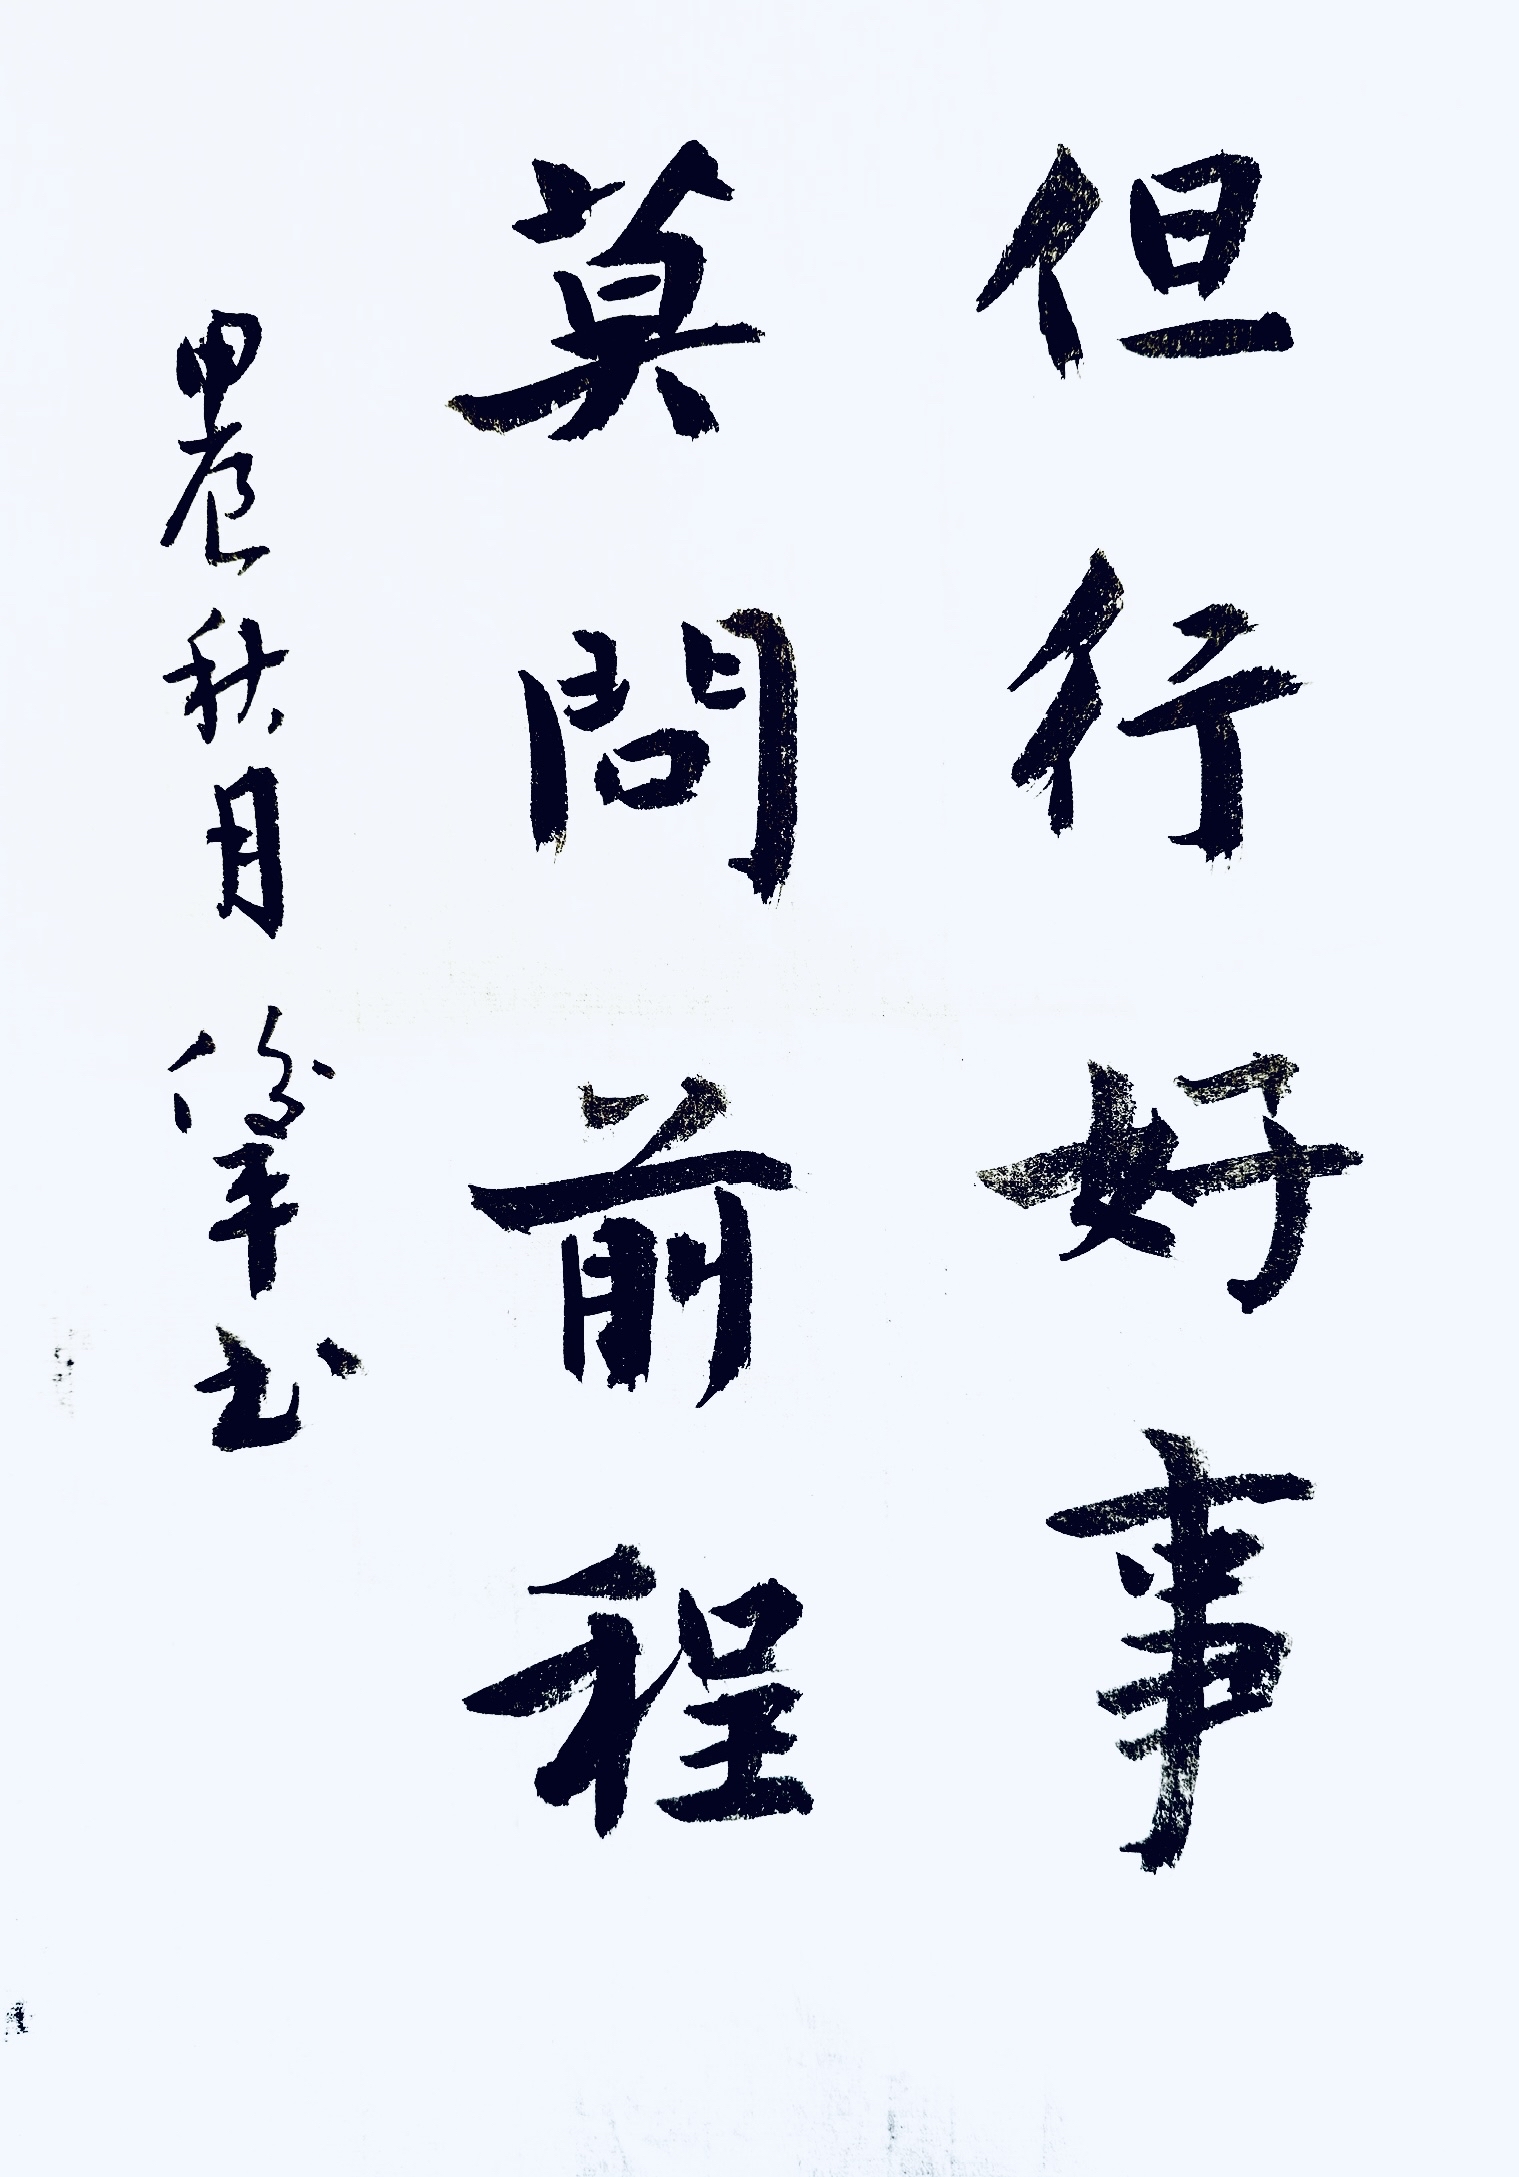 但行好事
莫問前程
甲辰秋月 書